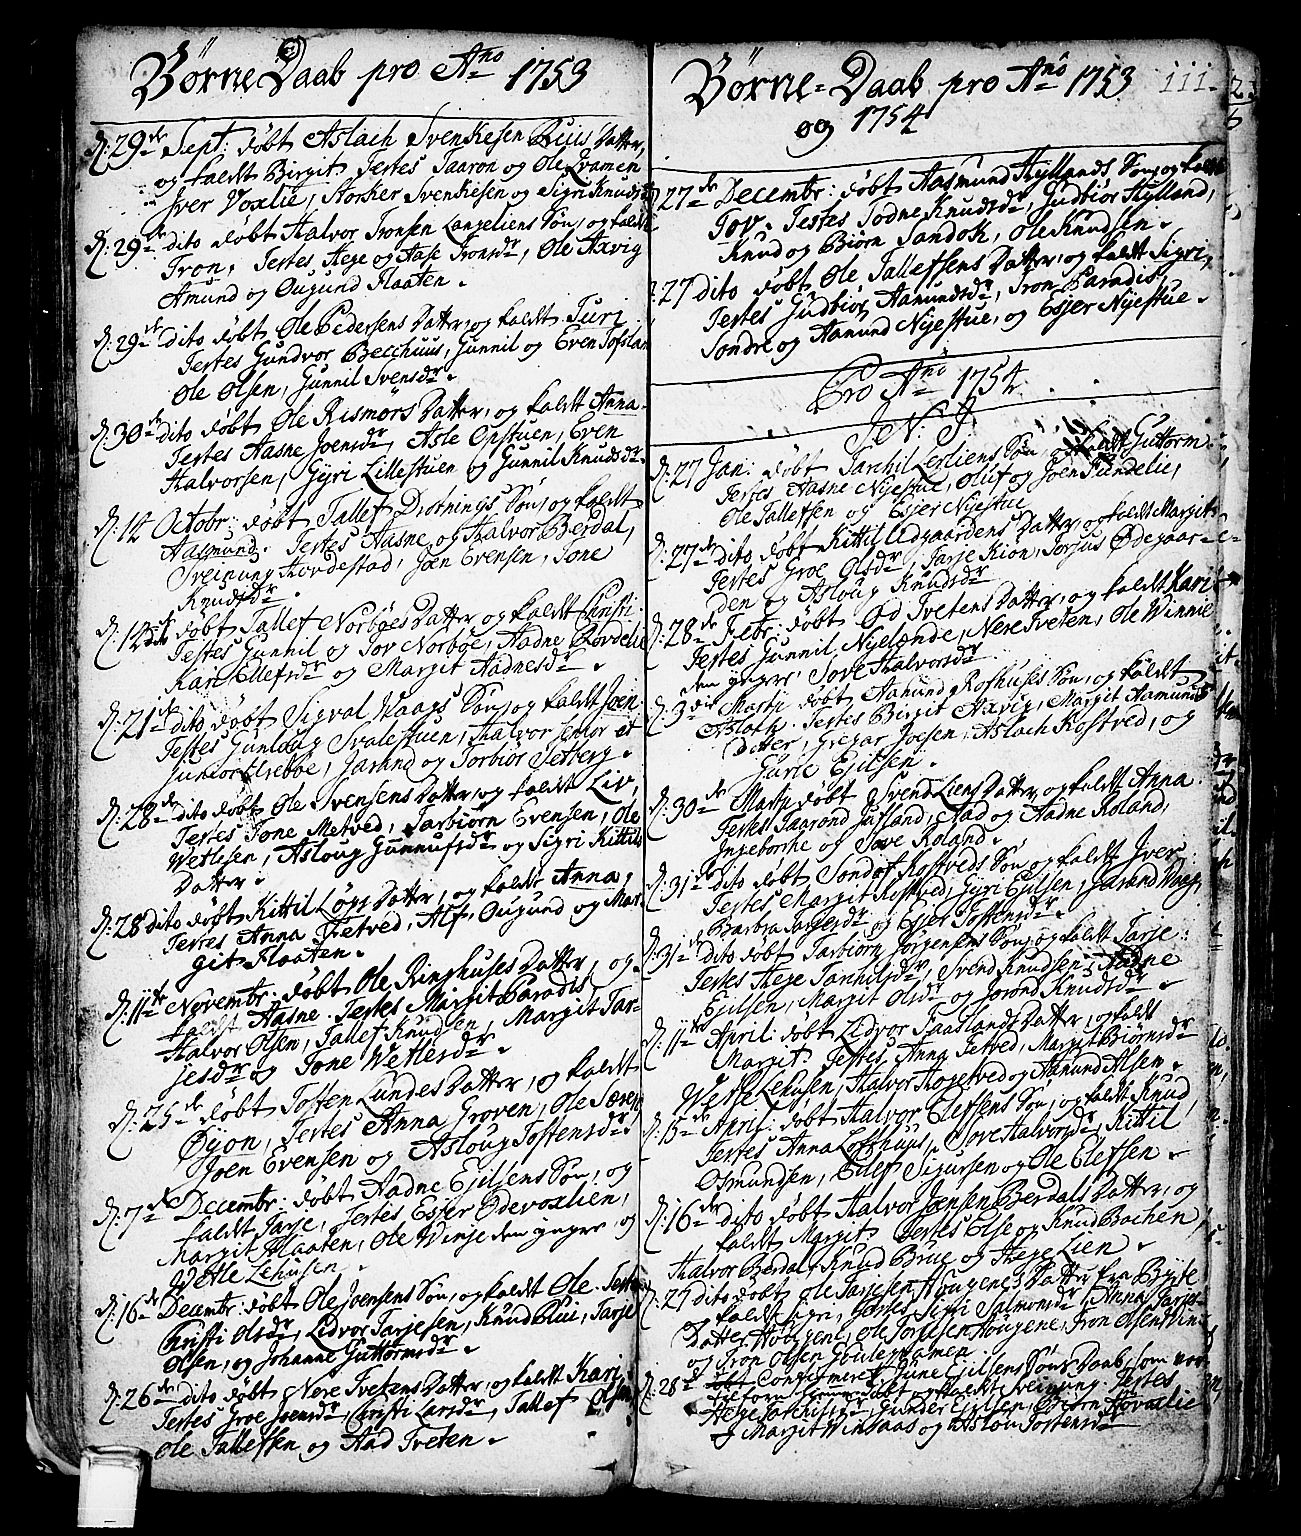 Børne Daab pro Ano 1753
d: 29de Sept: døbt Aslach Svenkesen Buus Datter,
og kaldt Birgit Testes Taaron og Ole Qvamen
Iver Voxlie, Storker Svenkesen og Sigri Knudsdr
d: 29de dito døbt Halvor Tronsen Langeliens Søn, og kaldt
Tron, Testes Hege og Aase Tronsdr, Ole Axvig
Amund og Ougund Flaaten.
d: 29de dito døbt Ole Pedersens Datter, og kaldt Turi
Testes Gundvor Bechuus, Gunnil og Even Tofsland
Ole Olsen, Gunnil Svensdr.
d: 30de dito døbt Ole Rismørs Datter, og kaldt Anna
Testes Aasne Joensdr, Asle Opstuen, Even
Halvorsen, Gyri Lillestuen og Gunnil Knudsdr
d: 14 Octobr: døbt Tallef Drotnings Søn, og kaldt
Aasmund. Testes Aasne, og Halvor Berdal,
Sveinung Hovdestad, Joen Evensen, Tone
Knudsdr.
d: 14de dito døbt Tallef Norbøes Datter, og kaldt Christi
Testes Gunnil og Tov Norbøe, Aadne Rovdelie
Kari Ellefsdr og Margit Aadnesdr.
d: 21de dito døbt Sigval Waags Søn, og kaldt Joen
Testes Gunlaug Svalestuen, Halvor senior et
Junior Elsebøe, Jarand og Torbiør Setberg.
d: 28de dito døbt Ole Svensens Datter, og kaldt Liv,
Testes Tone Metved, Tarbiørn Evensen, Ole
Wetlesen, Asloug Gunnufsdr og Sigri Kittils
Datter.
d: 28 dito døbt Kittil Løgs Datter, og kaldt Anna,
Testes Anna Tretved, Alf, Ougund og Mar-
git Flaaten.
d: 11te Novembr: døbt Ole Ringhuses Datter, og
kaldt Aasne. Testes Margit Paradis,
Halvor Olsen, Tallef Knudsen, Margit Tar-
jesdr og Tone Wetlesdr.
d: 25de døbt Tosten Lundes Datter, og kaldt
Øyon, Testes Anna Groven, Ole Særen
Joen Evensen og Asloug Tostensdr.
d: 7de Decembr: døbt Aadne Ejelsens Søn, og
kaldt Tarje, Testes Esjer Ødevoxlien,
Margit Flaaten, Ole Winje den yngre, og
Wetle Lehusen.
d: 16de Decembr: døbt Ole Joensens Søn, og kaldt Ole. Testes
Christi Olsdr, Lidvor Tarjesen, Knud Buus, Tarje
Olsen, og Johanne Guttormsdr.
d: 26de dito døbt Nere Tvetens Datter, og kaldt Kari
Testes Groe Joensdr, Christi Larsdr, Tallef Olsen
Ole Tallefsen og Aad Tveten.
Børne-Daab pro Ano 1753
og 1754
111.
d: 27de Decembr: døbt Aasmund Hyllands Søn, og kaldt
Tov. Testes Todne Knudsdr, Gudbiør Hylland,
Knud og Biørn Sandok, Ole Knudsen.
d: 27 dito døbt Ole Tallefsens Datter, og kaldt Sigri,
Testes Gudbiør Aamundsdr, Tron Paradis,
Sondre og Aamund Nijestue, og Esjer Nijestue.
Pro Ano 1754
J. N. J.
d: 27 Jan: døbt Tarchil Lesliens Søn, og kaldt Guttorm
Testes Aasne Nijestue, Oluf og Joen Sundelie,
Ole Tallefsen og Esjer Nijestue
d: 27de dito døbt Kittil Udgaardens Datter, og kaldt Margit
Testes Groe Olsdr, Tarje Kion, Torjus Ødegaar-
den og Asloug Knudsdr
d: 28de Febr: døbt Od Tvetens Datter, og kaldt Kari
Testes Gunnil Nijelænde, Nere Tveten, Ole Winnie
den yngre, Tove Halvorsdr
d: 3die Martij døbt Aamund Roshuses Søn, og kaldt
Aslach. Testes Birgit Axvig, Margit Aamunds
Datter, Gregar Joesen, Aslach Kostved, og
Gurie Ejelsen.
d: 30de Martij døbt Svend Liens Datter, og kaldt Anna
Testes Taarond Jufland, Aad og Aadne Roland,
Ingeborrhe og Tove Roland.
d: 31de dito døbt Sondof Kostveds Søn og kaldt Iver
Testes Margit Kostved, Gyri Ejelsen, Jarand Waag,
Barbra Tarjesdr og Esjer Tostensdr.
d: 31de dito døbt Tarbiørn Jørgensens Søn, og kaldt Tarje:
Testes Hege Tarchilsdr, Svend Knudsen, Aadne
Ejelsen, Margit Olsdr og Jorond Knudsdr.
d: 11te April: døbt Lidvor Taaslands Datter, og kaldt
Margit. Testes Anna Tetved, Margit Biørnsdr
Wetle Lehusen, Halvor Hogetved og Aamund Alsen.
d: 15de April: døbt Halvor Elefsens Søn, og kaldt Knud,
Testes Anna Lofthuus, Tove Halvorsdr, Kittil
Osmundsen, Ellef Sigursen og Ole Elefsen.
d: 16de dito døbt Halvor Jensen Berdals Datter, og
kaldt Margit. Testes Else og Knud Bachen,
Halvor Berdal, Knud Brue og Hege Lien.
d: 27 dito døbt Ole Tarjesen Hougenes Datter fra Bygle
og kaldt Sigri, Testes Sigri Salmonsdr, Anna Tarjes
Datter Hougene, Ole Torjelsen Hougene, Tron Olsen Vin
og Tron Olsen Gouleqvamen.
d: 28de Confirmeret Tune Ejelsens Søns Daab, som var
hiemme døbt og kaldt Sveinung. Testes
Hege Tarchilsdr, Gunder Ejelsen, Biørn Hovaslie
og Margit Winsaas og Aslou Tostensdr